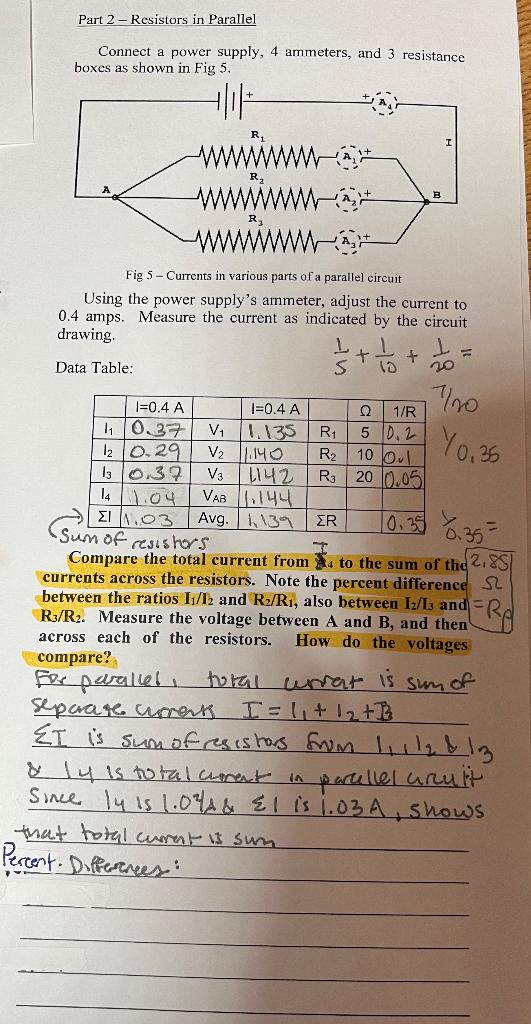 Part 2 – Resistors in Parallel
Connect a power supply, 4 ammeters, and 3 resistance
boxes as shown in Fig 5.
+
+ A4
I
R1
A1 +
R2
A2 +
A
B
R3
A3 +
Fig 5 – Currents in various parts of a parallel circuit
Using the power supply's ammeter, adjust the current to
0.4 amps. Measure the current as indicated by the circuit
drawing.
1/5 + 1/10 + 1/20 =
Data Table:
7/20
I=0.4 A I=0.4 A Ω 1/R
I1 0.37 V1 1.135 R1 5 0.2
1/0.35
I2 0.29 V2 1.140 R2 10 0.1
I3 0.37 V3 1.142 R3 20 0.05
I4 1.04 VAB 1.144
ΣI 1.03 Avg. 1.139 ΣR 0.35
1/0.35 =
Sum of resistors
2.85 Ω = Rp
I
Compare the total current from A4 to the sum of the
currents across the resistors. Note the percent difference
between the ratios I1/I2 and R2/R1, also between I2/I3 and
R3/R2. Measure the voltage between A and B, and then
across each of the resistors. How do the voltages
compare?
For parallel, total current is sum of
separate currents I = I1 + I2 + I3
ΣI is sum of resistors from I1, I2 & I3
& I4 is total current in parallel circuit
Since I4 is 1.04A & ΣI is 1.03 A, shows
that total current is sum
Percent. Differences: